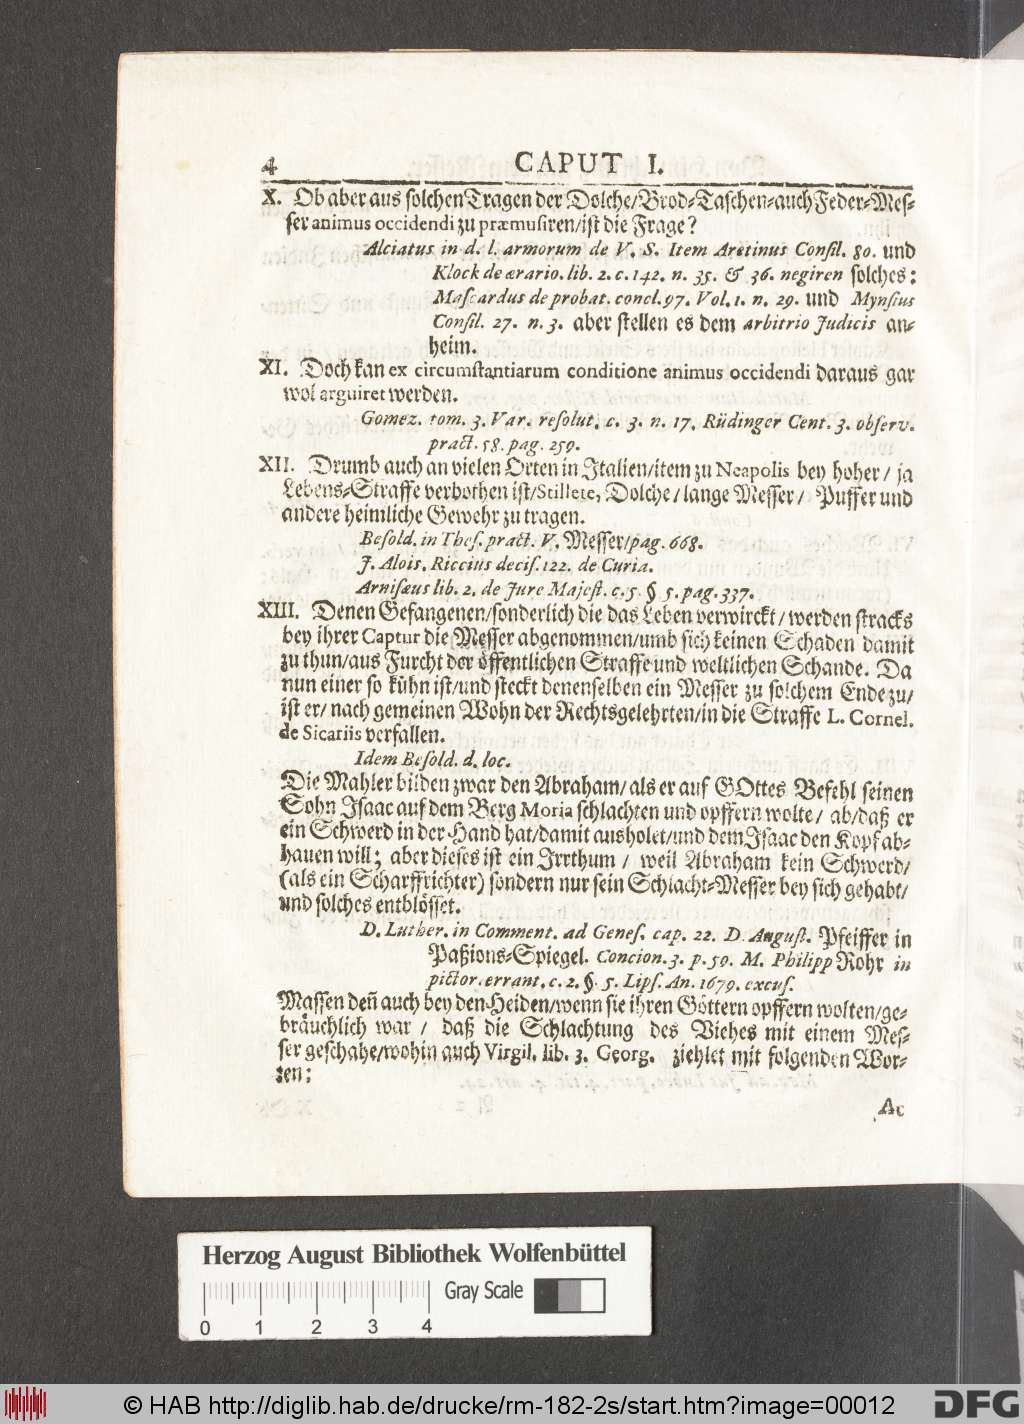 4 CAPUT I.
X. Ob aber aus solchen Tragen der Dolche/Brod-Taschen-auch Feder-Mes-
ser animus occidendi zu præmusiren/ist die Frage?
Alciatus in d. l. armorum de V. S. Item Aretinus Consil. 80. und
Klock de ærario. lib. 2. c. 142. n. 35. & 36. negiren solches:
Mascardus de probat. concl. 97. Vol. 1. n. 29. und Mynsius
Consil. 27. n. 3. aber stellen es dem arbitrio Judicis an-
heim.
XI. Doch kan ex circumstantiarum conditione animus occidendi daraus gar
wol arguiret werden.
Gomez. tom. 3. Var. resolut. c. 3. n. 17. Rüdinger Cent. 3. observ.
pract. 58. pag. 259.
XII. Drumb auch an vielen Orten in Italien/item zu Neapolis bey hoher / ja
Lebens-Straffe verbothen ist/Stillete, Dolche / lange Messer / Puffer und
andere heimliche Gewehr zu tragen.
Besold. in Thes. pract. V. Messer/pag. 668.
J. Alois. Riccius decis. 122. de Curia.
Arnisæus lib. 2. de Jure Majest. c. 5. § 5. pag. 337.
XIII. Denen Gefangenen/sonderlich die das Leben verwirckt / werden stracks
bey ihrer Captur die Messer abgenommen/umb sich keinen Schaden damit
zu thun/aus Furcht der öffentlichen Straffe und weltlichen Schande. Da
nun einer so kühn ist/und steckt denenselben ein Messer zu solchem Ende zu/
ist er/ nach gemeinen Wohn der Rechtsgelehrten/in die Straffe L. Cornel.
de Sicariis verfallen.
Idem Besold. d. loc.
Die Mahler bilden zwar den Abraham/ als er auf GOttes Befehl seinen
Sohn Isaac auf dem Berg Moria schlachten und opffern wolte / ab/daß er
ein Schwerd in der Hand hat/damit ausholet/und dem Isaac den Kopf ab-
hauen will; aber dieses ist ein Irrthum / weil Abraham kein Schwerd/
(als ein Scharffrichter) sondern nur sein Schlacht-Messer bey sich gehabt/
und solches entblösset.
D. Luther. in Comment. ad Genes. cap. 22. D. August. Pfeiffer in
Paßions-Spiegel. Concion. 3. p. 59. M. Philipp Rohr in
pictor. errant. c. 2. § 5. Lips. An. 1679. excus.
Massen deñ auch bey den Heiden/wenn sie ihren Göttern opffern wolten/ge-
bräuchlich war / daß die Schlachtung des Viehes mit einem Mes-
ser geschahe/wohin auch Virgil. lib. 3. Georg. ziehlet mit folgenden Wor-
ten:
Ac
Herzog August Bibliothek Wolfenbüttel
Gray Scale
0 1 2 3 4
© HAB http://diglib.hab.de/drucke/rm-182-2s/start.htm?image=00012
DFG